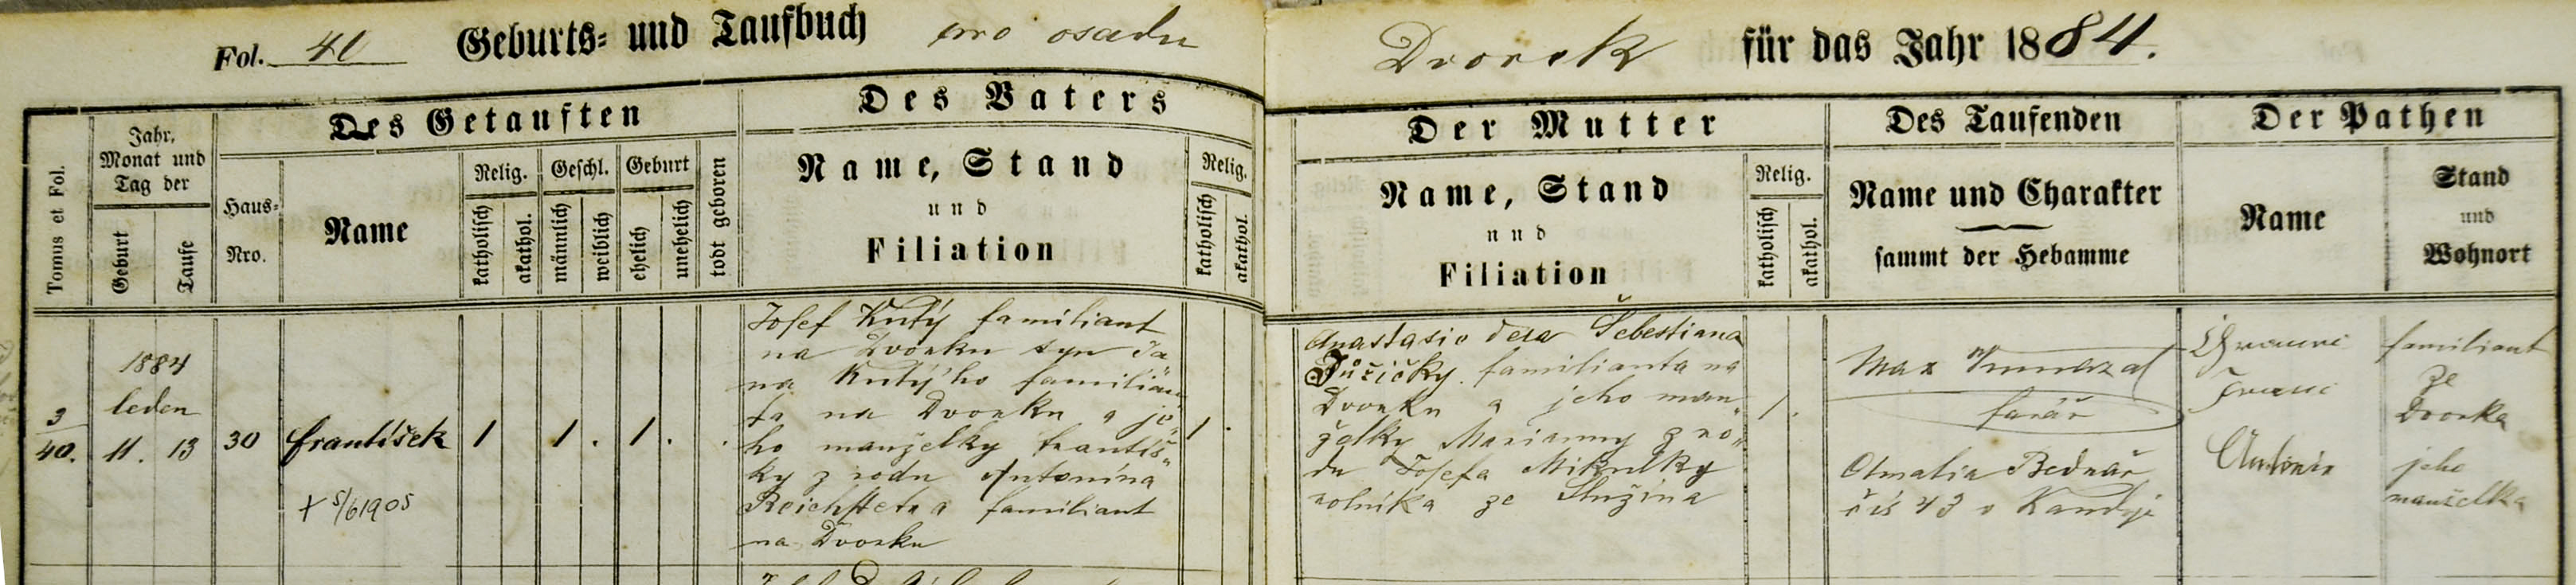 Fol. 40 Geburts- und Taufbuch pro osadu Dvorek für das Jahr 1884.
Tomus et Fol.
Jahr, Monat und Tag der
Geburt
Taufe
Des Getauften
Haus-Nro.
Name
Relig.
katholisch
akathol.
Geschl.
männlich
weiblich
Geburt
ehelich
unehelich
todt geboren
Des Vaters
Name, Stand
und
Filiation
Relig.
katholisch
akathol.
Der Mutter
Name, Stand
und
Filiation
Relig.
katholisch
akathol.
Des Taufenden
Name und Charakter
sammt der Hebamme
Der Pathen
Name
Stand
und
Wohnort
3
40.
1884
leden
11. 13
30
František
+ 5/6 1905
1
1 .
1 .
.
Josef Kutý familiant
na Dvorku syn Ja
na Kutý'ho familian
ta na Dvorku a je„
ho manželky Františ„
ky z rodu Antonína
familiant
na Dvorku
1 .
Anastasie dcra Šebestiana
Růžičky familianta na
Dvorku a jeho man„
želky Marianny z ro„
du Josefa Mikulky
rolníka ze Služína
1 .
Max
farář
Amalia Bednář
čís 43 v
Franc
Antonie
familiant
ze
Dvorka
jeho
manželka